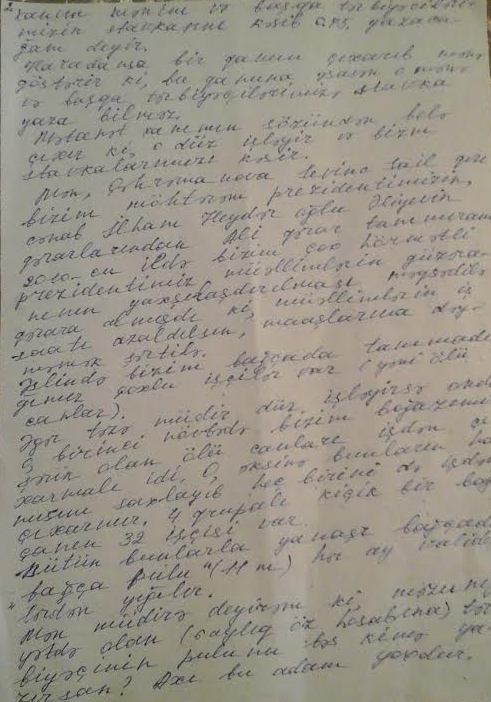 xanım mənimi və başqa tərbiyəçiləri-
mizin stavkasını kəsib 0,75 yazaca-
ğam deyir.
Haradansa bir qanun çıxarıb mənə
göstərir ki, bu qanuna əsasən o mənə
və başqa tərbiyəçilərimizə stavka
yaza bilməz.
xanımın sözündən belə
çıxır ki, o düz işləyir və bizim
stavkalarımızı kəsir.
Mən, Qəhrəmanova Sevinc
bizim möhtərəm prezidentimizin,
cənab İlham Heydər oğlu Əliyevin
qərarlarından Ali qərar tanımıram
2010-cu ildə bizim çox hörmətli
prezidentimiz müəllimlərin güzəra-
nının yaxşılaşdırılması məqsədilə
qərara almışdı ki, müəllimlərin iş
saatı azaldılsın, maaşlarına dəy-
məmək şərtilə.
Əslində bizim bağçada tanımadı
ğımız çoxlu işçilər var (yəni ölü
canlar).
Əgər təzə müdir düz işləyirsə onda
o birinci növbədə bizim boğazımı
şərik olan ölü canları işdən çı
xarmalı idi. O, əksinə bunların ha
mısını saxlayıb heç birini də işdən
çıxarmır. 4 qrupalı kiçik bir bağ
çanın 32 işçisi var.
Bütün bunlarla yanaşı bağçada
"bağça pulu" (11 m) hər ay valide
lərdən yığılır.
Mən müdirə deyirəm ki, məzuniy
yətdə olan (sağlıq öz hesabına) tər
biyəçinin pulunu bəs kimə ya-
zırsan? Axı bu adam yoxdur.